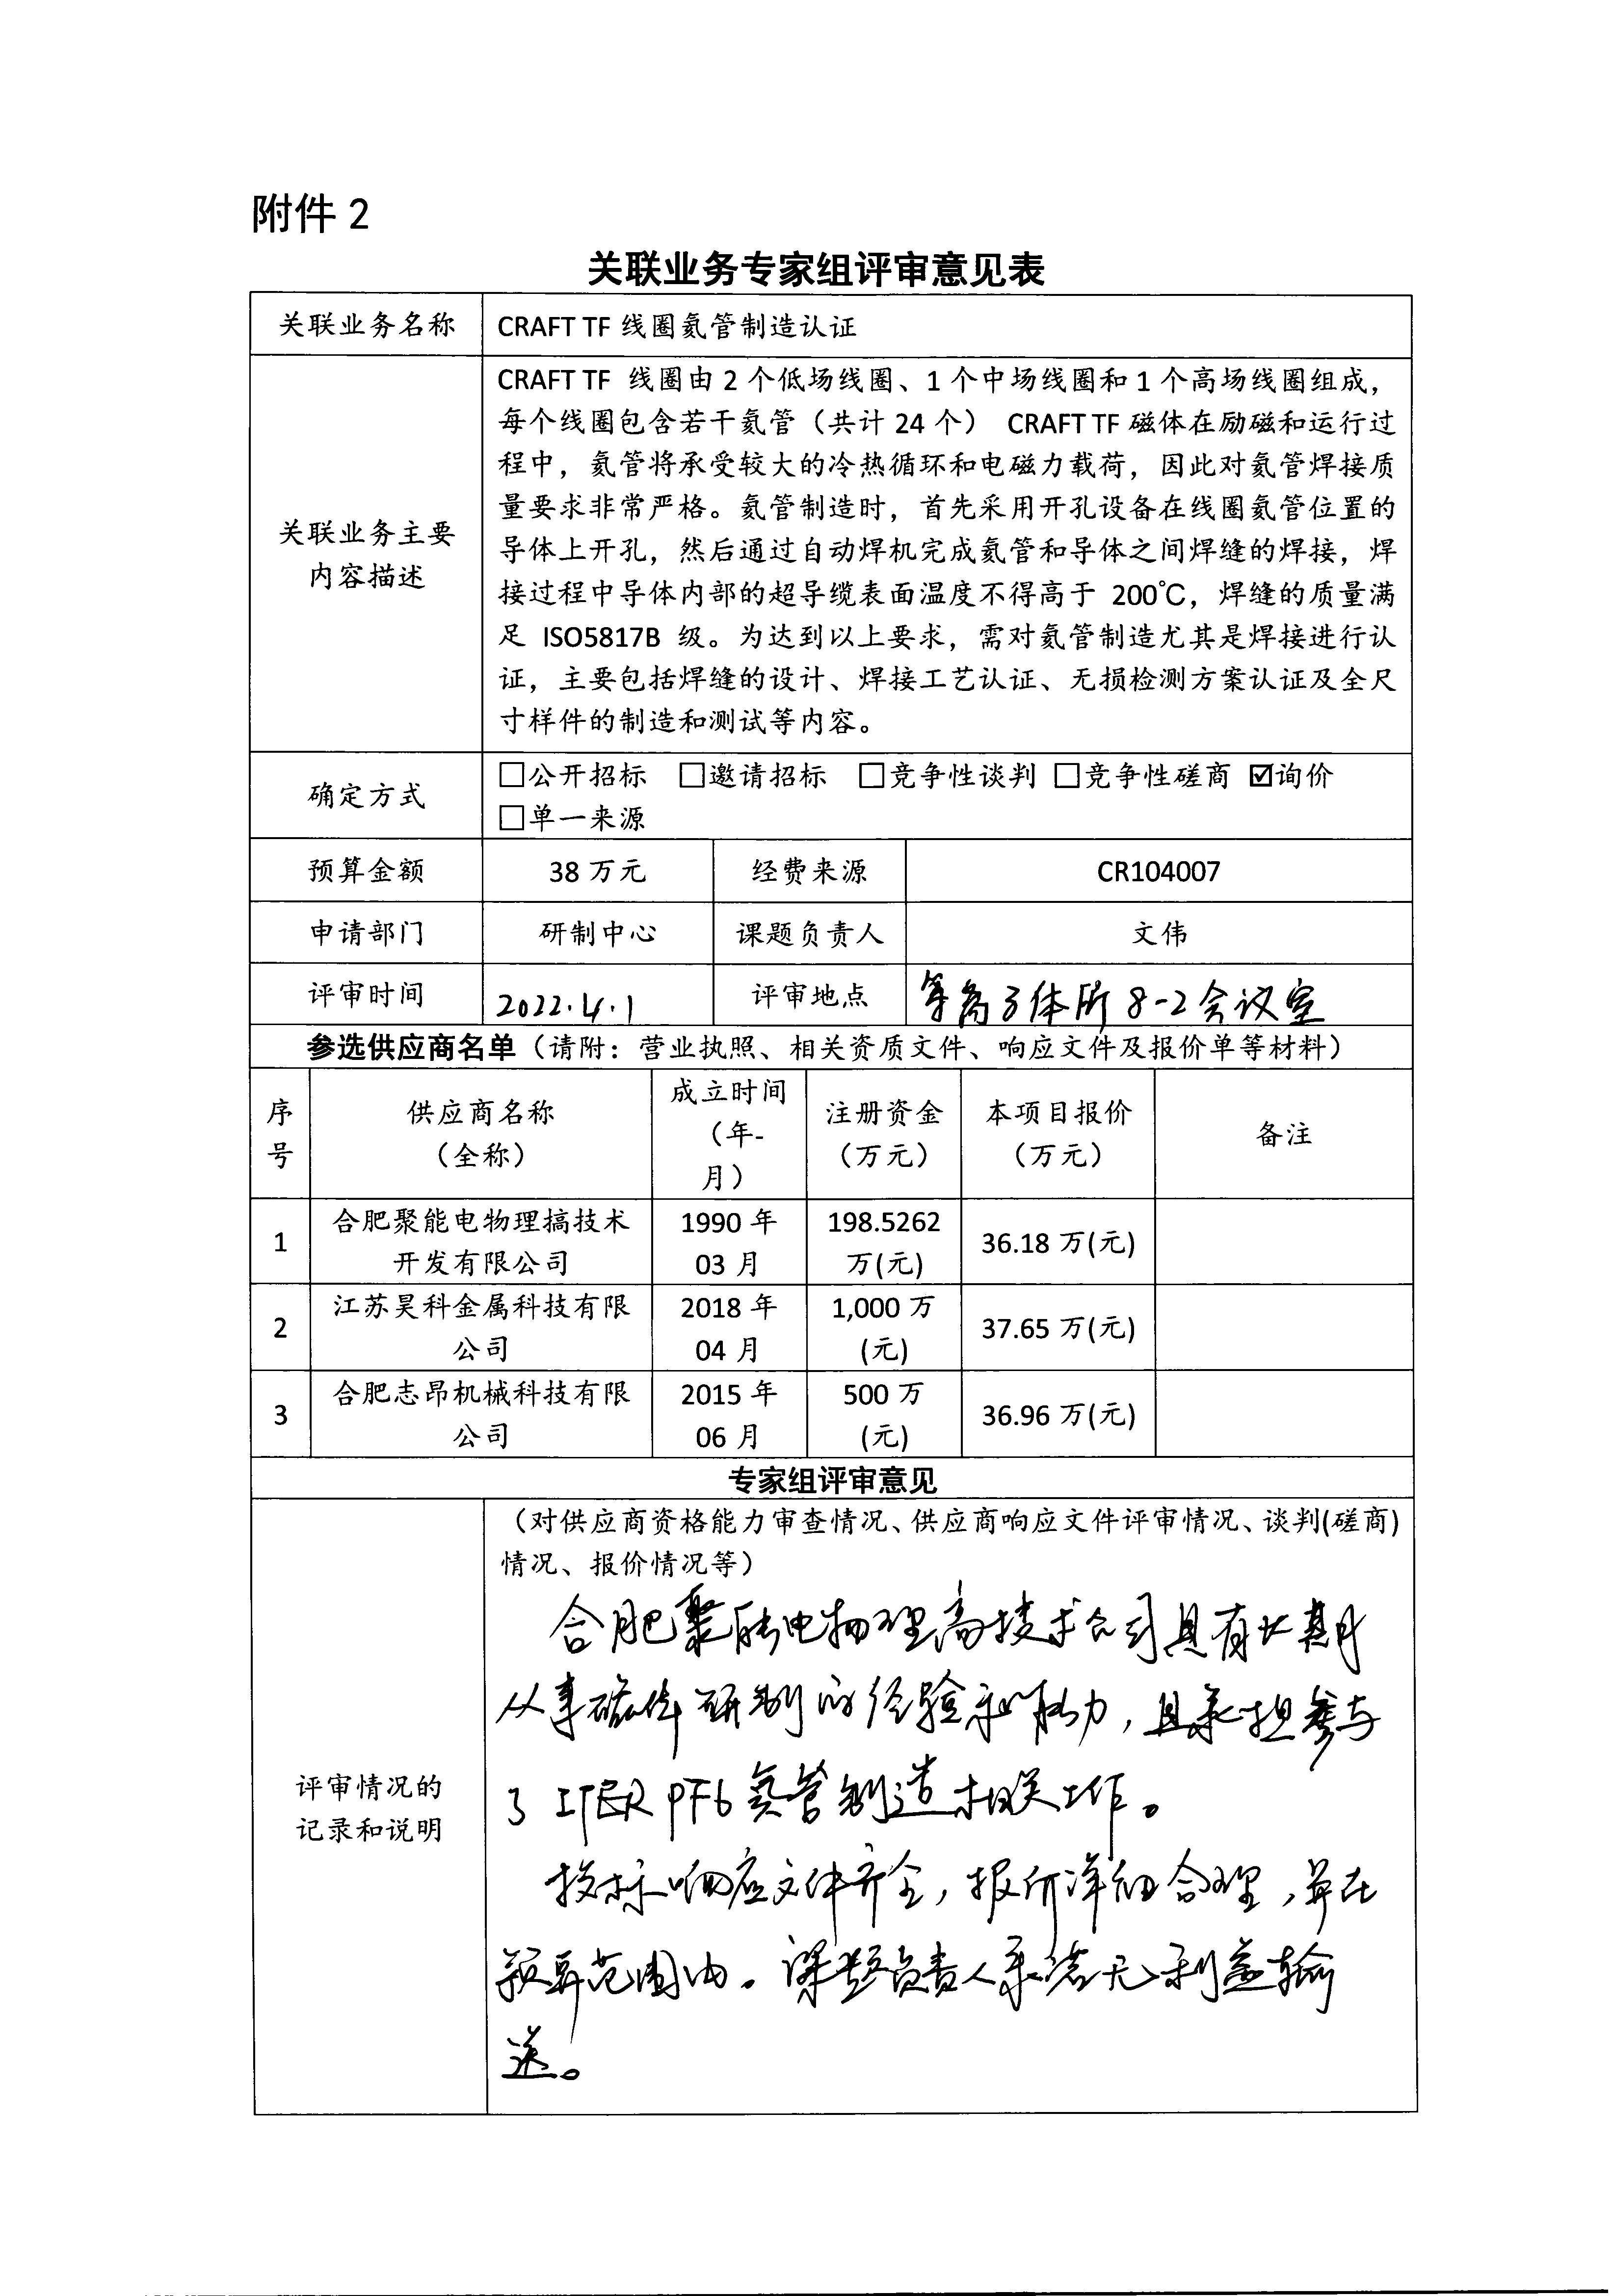 附件 2
关联业务专家组评审意见表
关联业务名称
CRAFT TF 线圈氦管制造认证
关联业务主要
内容描述
CRAFT TF 线圈由 2 个低场线圈、1 个中场线圈和 1 个高场线圈组成，
每个线圈包含若干氦管（共计 24 个） CRAFT TF 磁体在励磁和运行过
程中，氦管将承受较大的冷热循环和电磁力载荷，因此对氦管焊接质
量要求非常严格。氦管制造时，首先采用开孔设备在线圈氦管位置的
导体上开孔，然后通过自动焊机完成氦管和导体之间焊缝的焊接，焊
接过程中导体内部的超导缆表面温度不得高于 200℃，焊缝的质量满
足 ISO5817B 级。为达到以上要求，需对氦管制造尤其是焊接进行认
证，主要包括焊缝的设计、焊接工艺认证、无损检测方案认证及全尺
寸样件的制造和测试等内容。
确定方式
□公开招标 □邀请招标 □竞争性谈判 □竞争性磋商 ☑询价
□单一来源
预算金额 38 万元 经费来源 CR104007
申请部门 研制中心 课题负责人 文伟
评审时间 2022.4.1 评审地点 等离子体所 8-2会议室
参选供应商名单（请附：营业执照、相关资质文件、响应文件及报价单等材料）
序
号
供应商名称
（全称）
成立时间
（年-
月）
注册资金
（万元）
本项目报价
（万元）
备注
1
合肥聚能电物理搞技术
开发有限公司
1990 年
03 月
198.5262
万(元)
36.18 万(元)
2
江苏昊科金属科技有限
公司
2018 年
04 月
1,000 万
(元)
37.65 万(元)
3
合肥志昂机械科技有限
公司
2015 年
06 月
500 万
(元)
36.96 万(元)
专家组评审意见
评审情况的
记录和说明
（对供应商资格能力审查情况、供应商响应文件评审情况、谈判(磋商)
情况、报价情况等）
合肥聚能电物理高技术公司具有长期
从事磁体研制的经验和能力，且承担参与
了 ITER PF6 氦管制造相关工作。
投标响应文件齐全，报价详细合理，并在
预算范围内。课题负责人承诺无利益输
送。